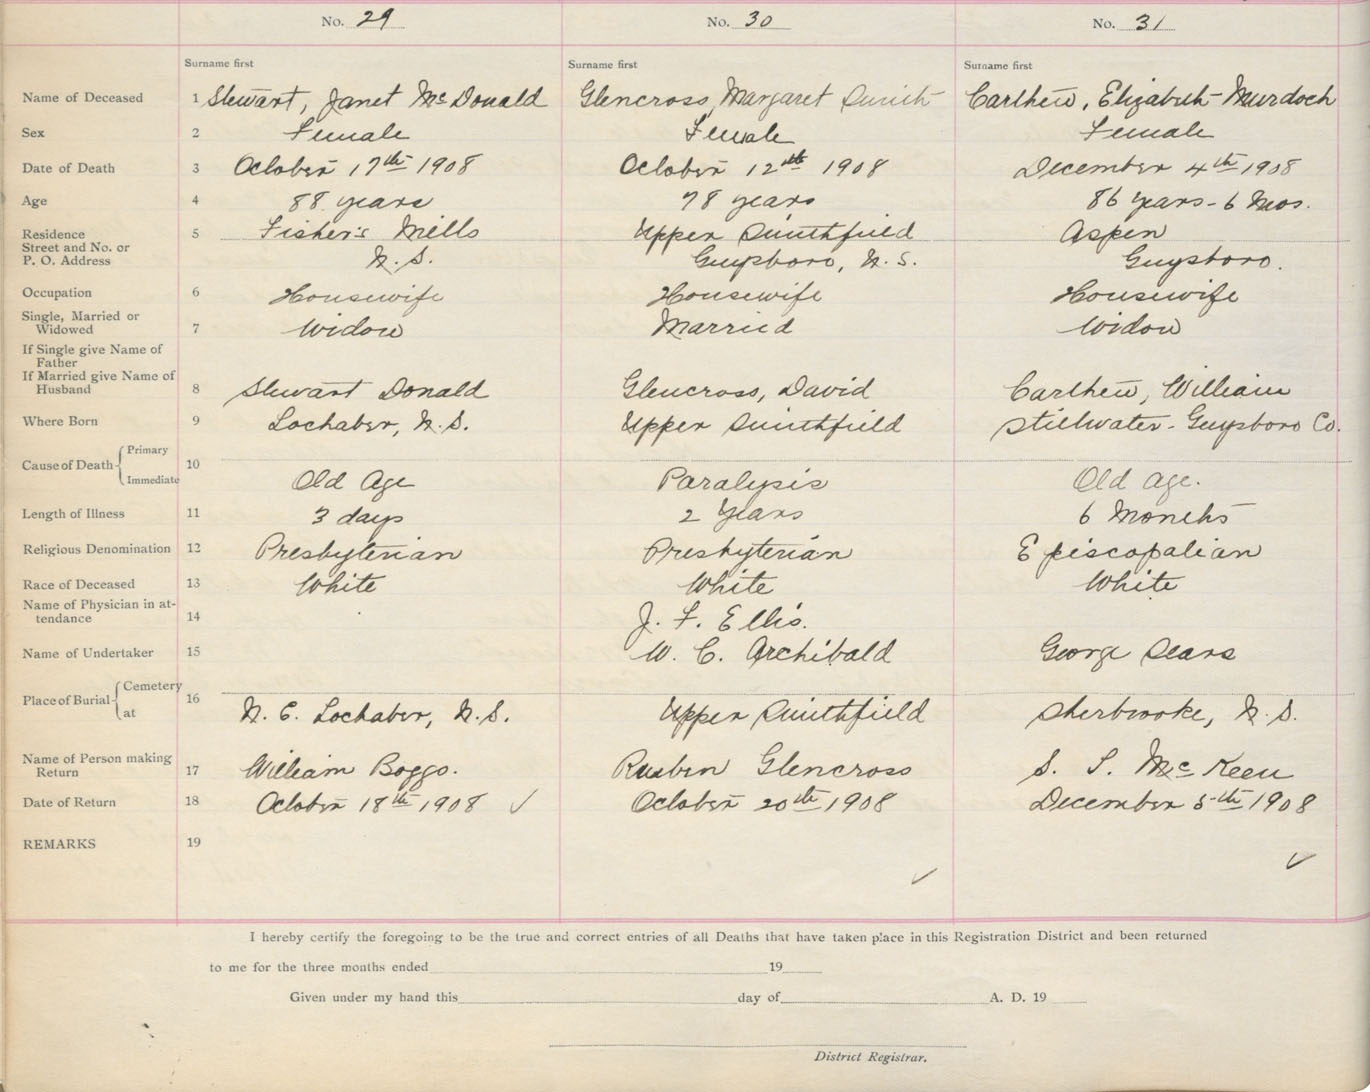 No. 29 No. 30 No. 31
Surname first Surname first Surname first
Name of Deceased 1 Stewart, Janet McDonald Glencross, Margaret Smith Carthew, Elizabeth Murdoch
Sex 2 Female Female Female
Date of Death 3 October 17th 1908 October 12th 1908 December 4th 1908
Age 4 88 years 78 years 86 years - 6 Mos.
Residence 5 Fisher's Mills Upper Smithfield Aspen
Street and No. or
P. O. Address N.S. Guysboro, N.S. Guysboro.
Occupation 6 Housewife Housewife Housewife
Single, Married or
Widowed 7 Widow Married Widow
If Single give Name of
Father
If Married give Name of
Husband 8 Stewart Donald Glencross, David Carthew, William
Where Born 9 Lochaber, N.S. Upper Smithfield Stillwater - Guysboro Co.
Cause of Death Primary 10
Immediate Old Age Paralysis Old Age.
Length of Illness 11 3 days 2 Years 6 Months
Religious Denomination 12 Presbyterian Presbyterian Episcopalian
Race of Deceased 13 White White White
Name of Physician in at-
tendance 14 J. F. Ellis.
Name of Undertaker 15 W. C. Archibald George Sears
Place of Burial Cemetery 16
at N. E. Lochaber, N.S. Upper Smithfield Sherbrooke, N.S.
Name of Person making
Return 17 William Boggs. Reuben Glencross S. S. McKeen
Date of Return 18 October 18th 1908 ✓ October 20th 1908 December 5th 1908
REMARKS 19
✓ ✓
I hereby certify the foregoing to be the true and correct entries of all Deaths that have taken place in this Registration District and been returned
to me for the three months ended 19
Given under my hand this day of A. D. 19
District Registrar.